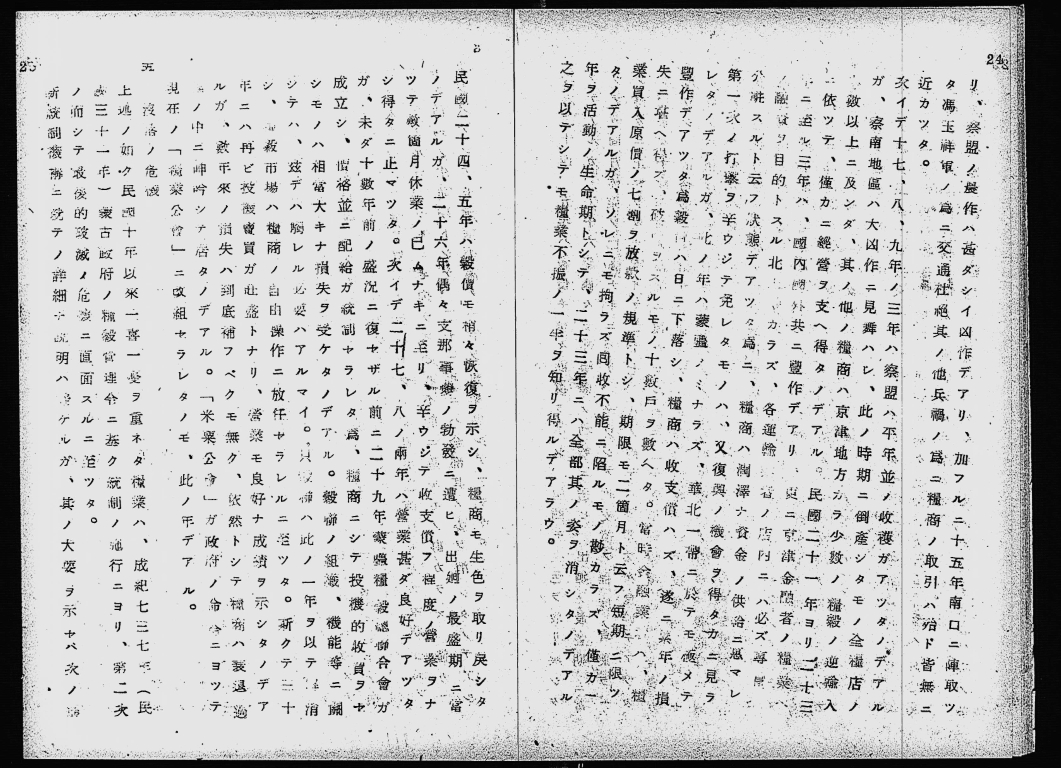 24
リ、察盟ノ農作ハ甚ダシイ凶作デアリ、加フルニ十五年南口ニ陣取ツ
タ馮玉祥軍ノ爲ニ交通杜絕其ノ他兵禍ノ爲ニ糧商ノ取引ハ殆ド皆無ニ
近カツタ。
次イデ十七、八、九年ノ三年ハ察盟ハ平年並ノ收穫ガアツタノデアル
ガ、察南地區ハ大凶作ニ見舞ハレ、此ノ時期ニ倒產シタモノ全糧店ノ
數以上ニ及ンダ、其ノ他ノ糧商ハ京津地方カラ少數ノ糧穀ノ逆輸入
ニ依ツテ、僅カニ經營ヲ支ヘ得タノデアル。民國二十一年ヨリ二十三
ニ至ル三年ハ、國內國外共ニ豐作デアリ、更ニ京津金融者ノ糧業
ノ融資ヲ目的トスル北 カラズ、各運輸 者ノ店內ニハ必ズ專
公 駐スルト云フ狀態デアツタ爲ニ、糧商ハ潤澤ナ資金ノ供給ニ惠マレ
第一次ノ打擊ヲ辛ウジテ免レタモノハ、又復興ノ機會ヲ得タカニ見ラ
レタノデアルガ、此ノ年ハ蒙疆ノミナラズ、華北一帶ニ於テモ極メテ
豐作デアツタ爲穀 ハ日ニ下落シ、糧商ハ收支償ハズ、遂ニ累年ノ損
失ニ堪ヘ得ズ、破 ヲスルモノ十數戶ヲ數ヘタ。當時金融業 ハ、糧
業買入原價ノ七割ヲ放款ノ規準トシ、期限モ二箇月ト云フ短期ニ限ツ
タノデアルガ、ソレニモ拘ラズ囘收不能ニ陷ルモノ尠カラズ、僅カ一
年ヲ活動ノ生命期トシテ、二十三年ニハ全部其ノ姿ヲ消シタノデアル
之ヲ以テシテモ糧業不振ノ一半ヲ知リ得ルデアラウ。
民國二十四、五年ハ穀價モ稍々恢復ヲ示シ、糧商モ生色ヲ取リ戾シタ
ノデアルガ、二十六年偶々支那事變ノ勃發ニ遭ヒ、出廻ノ最盛期ニ當
ツテ數箇月休業ノ已ムナキニ至リ、辛ウジテ收支償フ程度ノ營業ヲナ
シ得タニ止マツタ。次イデ二十七、八ノ兩年ハ營業甚ダ良好デアツタ
ガ、未ダ十數年前ノ盛況ニ復セザル前ニ二十九年蒙疆糧穀總聯合會ガ
成立シ、價格並ニ配給ガ統制セラレタ爲、糧商ニシテ投機的收買ヲセ
シモノハ相當大キナ損失ヲ受ケタノデアル。穀聯ノ組織、機能等ニ關
シテハ、茲デハ觸レル必要ハアルマイ。只穀聯ハ此ノ一年ヲ以テ解消
シ、糧穀市場ハ糧商ノ自由操作ニ放任セラレルニ至ツタ。斯クテ三十
年ニハ再ビ投機賣買ガ旺盛トナリ、營業モ良好ナ成績ヲ示シタノデア
ルガ、數年來ノ損失ハ到底補フベクモ無ク、依然トシテ糧商ハ衰退過
ノ中ニ呻吟シテ居タノデアル。「米粟公會」ガ政府ノ命ニヨツテ
現在ノ「糧業公會」ニ改組セラレタノモ、此ノ年デアル。
五 沒落ノ危機
上述ノ如ク民國十年以來一喜一憂ヲ重ネタ糧業ハ、成紀七三七年(民
國三十一年)蒙古政府ノ糧穀管理令ニ基ク統制ノ施行ニヨリ、第二次
ノ而シテ最後的攻滅ノ危機ニ直面スルニ至ツタ。
新統制機構ニ就テノ詳細ナ說明ハ避ケルガ、其ノ大要ヲ示セバ次ノ
25